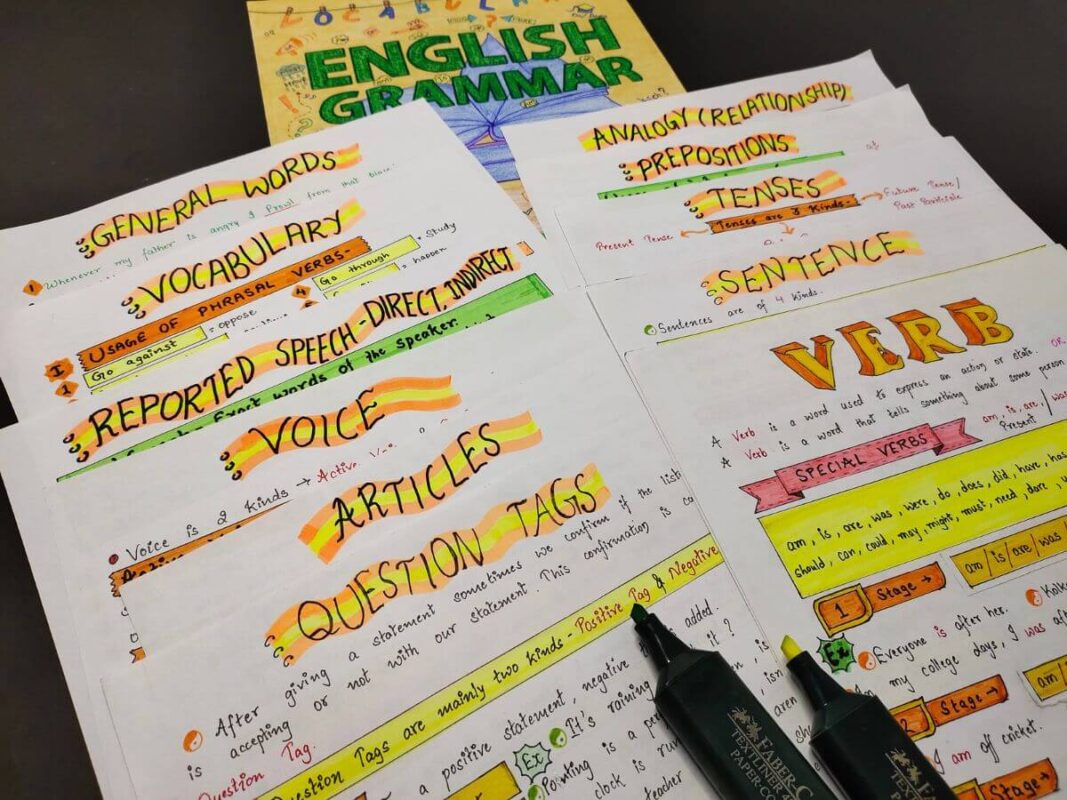 VOCABULARY
ENGLISH
GRAMMAR
GENERAL WORDS
Whenever my father is angry I Prowl from that place.
VOCABULARY
USAGE OF PHRASAL VERBS-
I
1
Go against
= oppose
4
Go through
= Study
= happen
REPORTED SPEECH-DIRECT, INDIRECT
Exact words of the Speaker.
VOICE
Voice is 2 kinds → Active
ARTICLES
QUESTION TAGS
After giving a statement sometimes we confirm if the
is accepting or not with our statement. This confirmation is
Question Tag.
Question Tags are mainly two kinds - Positive Tag & Negative
a positive statement, negative added.
Ex
It's raining it?
Painting is a
clock is
teacher
ANALOGY (RELATIONSHIP)
PREPOSITIONS
at
TENSES
Tenses are 3 Kinds-
Present Tense
Future Tense/
Past Participle
SENTENCE
Sentences are of 4 kinds.
VERB
A Verb is a word used to express an action or state. OR
A Verb is a word that tells something about some person
am, is, are, / was
Present
SPECIAL VERBS
am, is, are, was, were, do, does, did, have, has
should, can, could, may, might, must, need, dare,
1 Stage →
am/is/are/was
Ex
Everyone is after her.
my college days, I was
2 Stage →
am/
I am off cricket.
Stage →
FABER-C
TEXTLINER
PAPER-CO